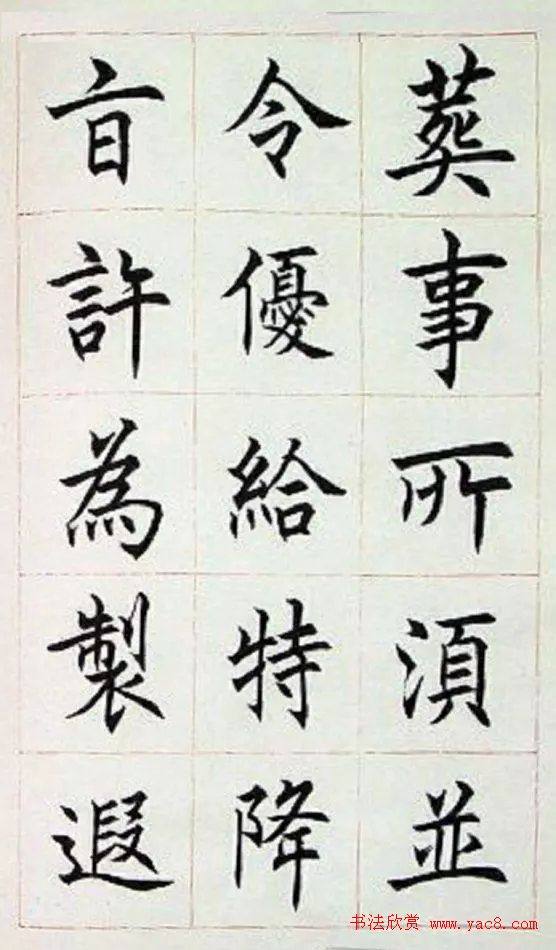 葬事所湏並
令優給特降
㫖許為製遐
书法欣赏 www.yac8.com